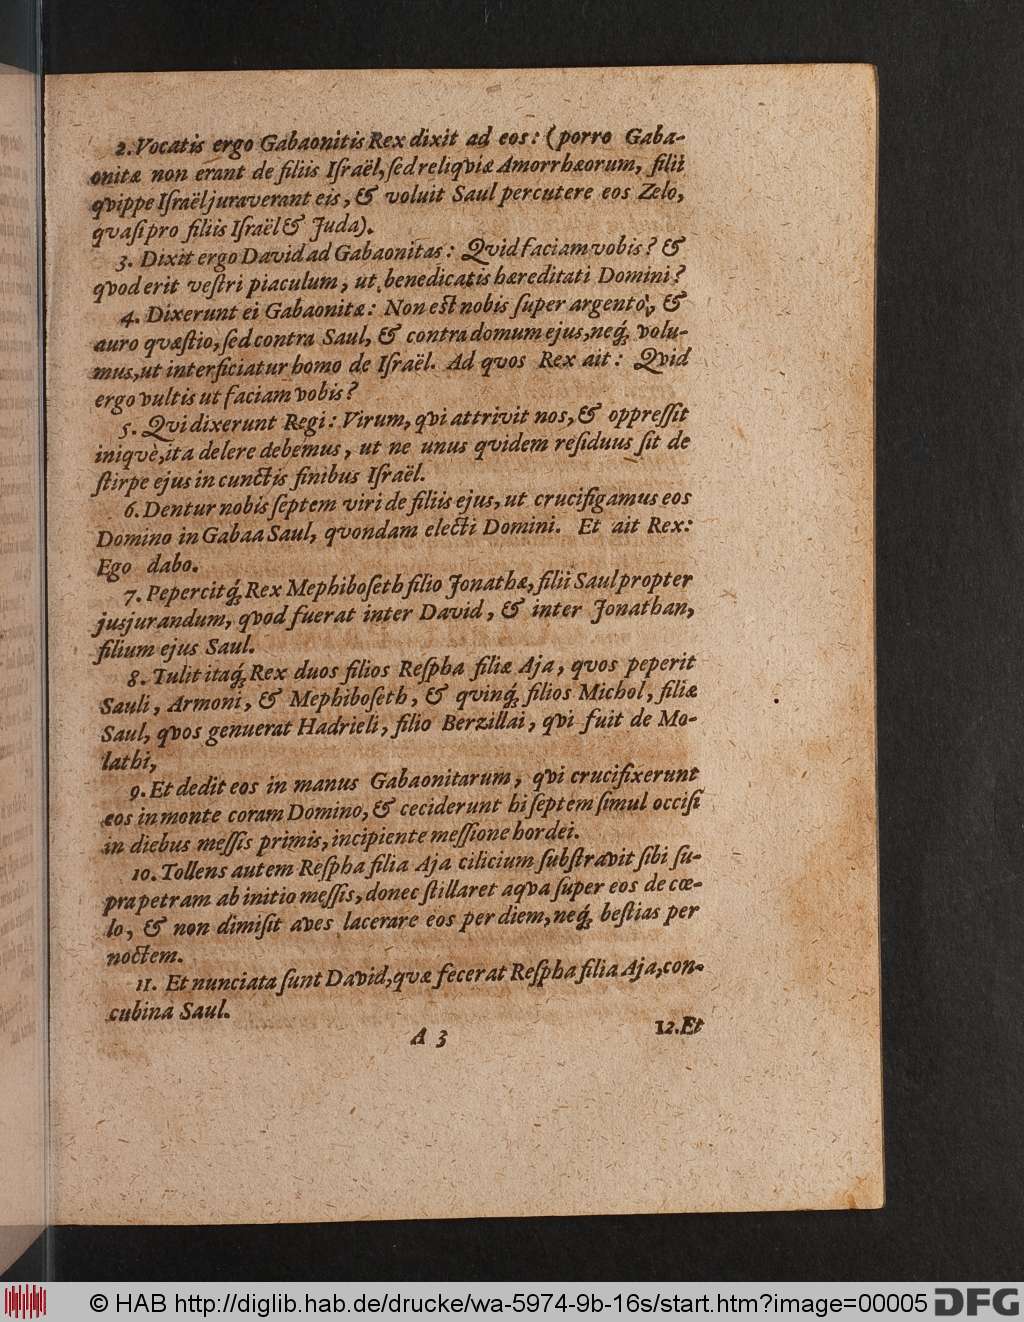 2. Vocatis ergo Gabaonitis Rex dixit ad eos: (porro Gaba-
onitæ non erant de filiis Iſraël, ſed reliqviæ Amorrhæorum, filii
qvippe Iſraël juraverant eis, & voluit Saul percutere eos Zelo,
qvaſi pro filiis Iſraël & Juda).
3. Dixit ergo David ad Gabaonitas: Qvid faciam vobis? &
qvod erit veſtri piaculum, ut benedicatis hæreditati Domini?
4. Dixerunt ei Gabaonitæ: Non eſt nobis ſuper argento, &
auro qvæſtio, ſed contra Saul, & contra domum ejus, neq́; volu-
mus, ut interficiatur homo de Iſraël. Ad qvos Rex ait: Qvid
ergo vultis ut faciam vobis?
5. Qvi dixerunt Regi: Virum, qvi attrivit nos, & oppreſſit
iniqvè, ita delere debemus, ut ne unus qvidem reſiduus ſit de
ſtirpe ejus in cunctis finibus Iſraël.
6. Dentur nobis ſeptem viri de filiis ejus, ut crucifigamus eos
Domino in Gabaa Saul, qvondam electi Domini. Et ait Rex:
Ego dabo.
7. Pepercitq́; Rex Mephiboſeth filio Jonathæ, filii Saul propter
jusjurandum, qvod fuerat inter David, & inter Jonathan,
filium ejus Saul.
8. Tulit itaq́; Rex duos filios Reſpha filiæ Aja, qvos peperit
Sauli, Armoni, & Mephiboſeth, & qvinq́; filios Michol, filiæ
Saul, qvos genuerat Hadrieli, filio Berzillai, qvi fuit de Mo-
lathi,
9. Et dedit eos in manus Gabaonitarum, qvi crucifixerunt
eos in monte coram Domino, & ceciderunt hi ſeptem ſimul occiſi
in diebus meſſis primis, incipiente meſſione hordei.
10. Tollens autem Reſpha filia Aja cilicium ſubſtravit ſibi ſu-
pra petram ab initio meſſis, donec ſtillaret aqva ſuper eos de cœ-
lo, & non dimiſit aves lacerare eos per diem, neq́; beſtias per
noctem.
11. Et nunciata ſunt David, qvæ fecerat Reſpha filia Aja, con-
cubina Saul.
A 3 12. Et
© HAB http://diglib.hab.de/drucke/wa-5974-9b-16s/start.htm?image=00005 DFG